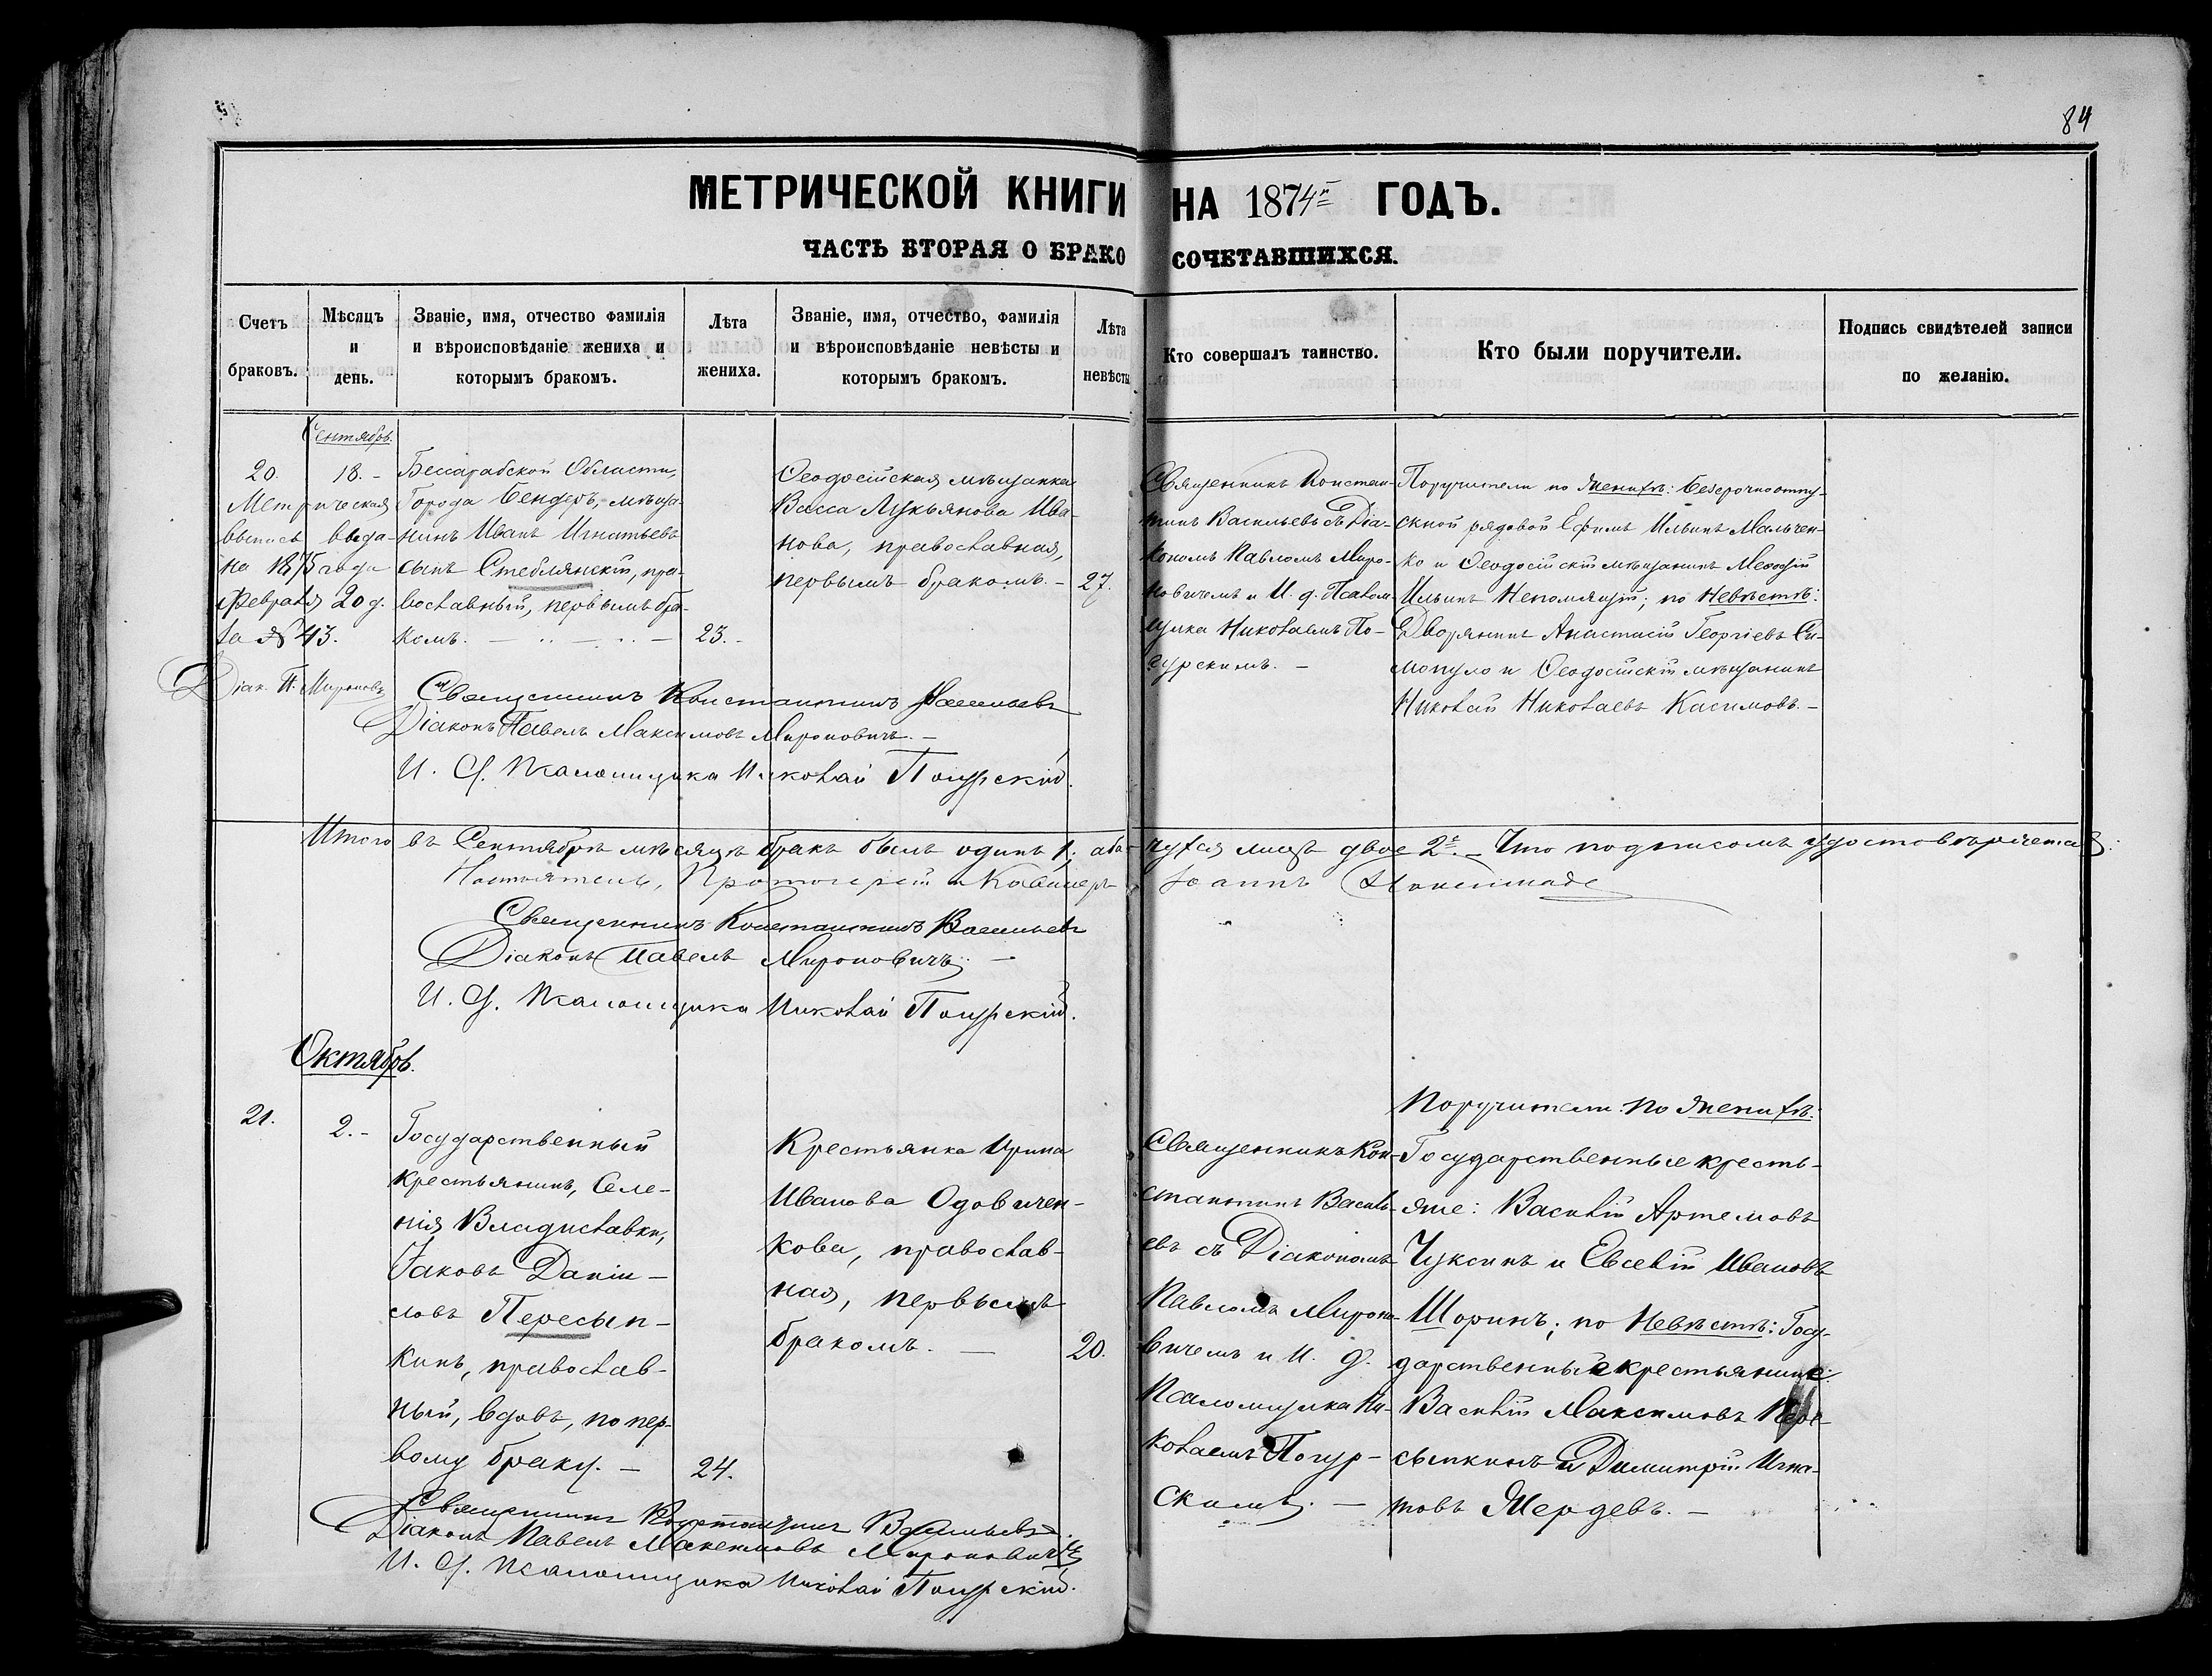 84
МЕТРИЧЕСКОЙ КНИГИ НА 1874й ГОДЪ.
ЧАСТЬ ВТОРАЯ О БРАКОСОЧЕТАВШИХСЯ.
Счетъ браковъ.
Мѣсяцъ и день.
Званіе, имя, отчество фамилія и вѣроисповѣданіе жениха и которымъ бракомъ.
Лѣта жениха.
Званіе, имя, отчество, фамилія и вѣроисповѣданіе невѣсты и которымъ бракомъ.
Лѣта невѣсты
Кто совершалъ таинство.
Кто были поручители.
Подпись свидѣтелей записи по желанію.
Сентябрь.
20.
18.-
Метрическая
выпись выда-
на 1875 года
Февраля 20 д.
за № 43.
Діак. П. Мироновъ
Бессарабской Области,
Города Бендеръ, мѣща-
нинъ Иванъ Игнатьевъ
сынъ Стеблянскій, пра-
вославный, первымъ бра-
комъ.
23.
Ѳеодосійская мѣщанка
Васса Лукьянова Ива-
нова, православная,
первымъ бракомъ. -
27.
Священникъ Констан-
тинъ Васильевъ съ Діа-
кономъ Павломъ Миро-
новичемъ и И. д. Псалом-
щика Николаемъ По-
гурскимъ. -
Поручители по Женихѣ: безсрочноотпу-
скной рядовой Ефимъ Ильинъ Мальчен-
ко и Ѳеодосійскій мѣщанинъ Меѳодій
Ильинъ Непомлящій; по Невѣстѣ:
Дворянинъ Анастасій Георгіевъ Си-
мопуло и Ѳеодосійскій мѣщанинъ
Николай Николаевъ Касимовъ. -
Священникъ Константинъ Васильевъ
Діаконъ Павелъ Максимовъ Мироновичъ. -
И. д. Псаломщика Николай Погурскій.
Итого въ Сентябрѣ мѣсяцѣ бракъ былъ одинъ 1; а вѣнчался лицъ двое 2е. - Что подписомъ удостовѣряется:
Настоятель, Протоіерей и Кавалеръ Іоаннъ
Священникъ Константинъ Васильевъ
Діаконъ Павелъ Мироновичъ -
И. д. Псаломщика Николай Погурскій.
Октябрь.
21.
2.-
Государственный
крестьянинъ, Селе-
нія Владиславки,
Іаковъ Даніи-
ловъ Пересып-
кинъ, православ-
ный, вдовъ, по пер-
вому браку. -
24.
Крестьянка Ирина
Иванова Одовичен-
кова, православ-
ная, первымъ
бракомъ. -
20.
Священникъ Кон-
стантинъ Василь-
евъ съ Діакономъ
Павломъ Мироно-
вичемъ и И. д.
Псаломщика Ни-
колаемъ Погур-
скимъ. -
Поручители: по Женихѣ:
Государственные кресть-
яне: Василій Артемовъ
Чуксинъ и Евсевій Ивановъ
Шоринъ; по Невѣстѣ: Госу-
дарственные крестьяне:
Василій Максимовъ Пере-
сыпкинъ и Димитрій Игна-
товъ Жердевъ. -
Священникъ Константинъ Васильевъ.
Діаконъ Павелъ Максимовъ Мироновичъ
И. д. Псаломщика Николай Погурскій.